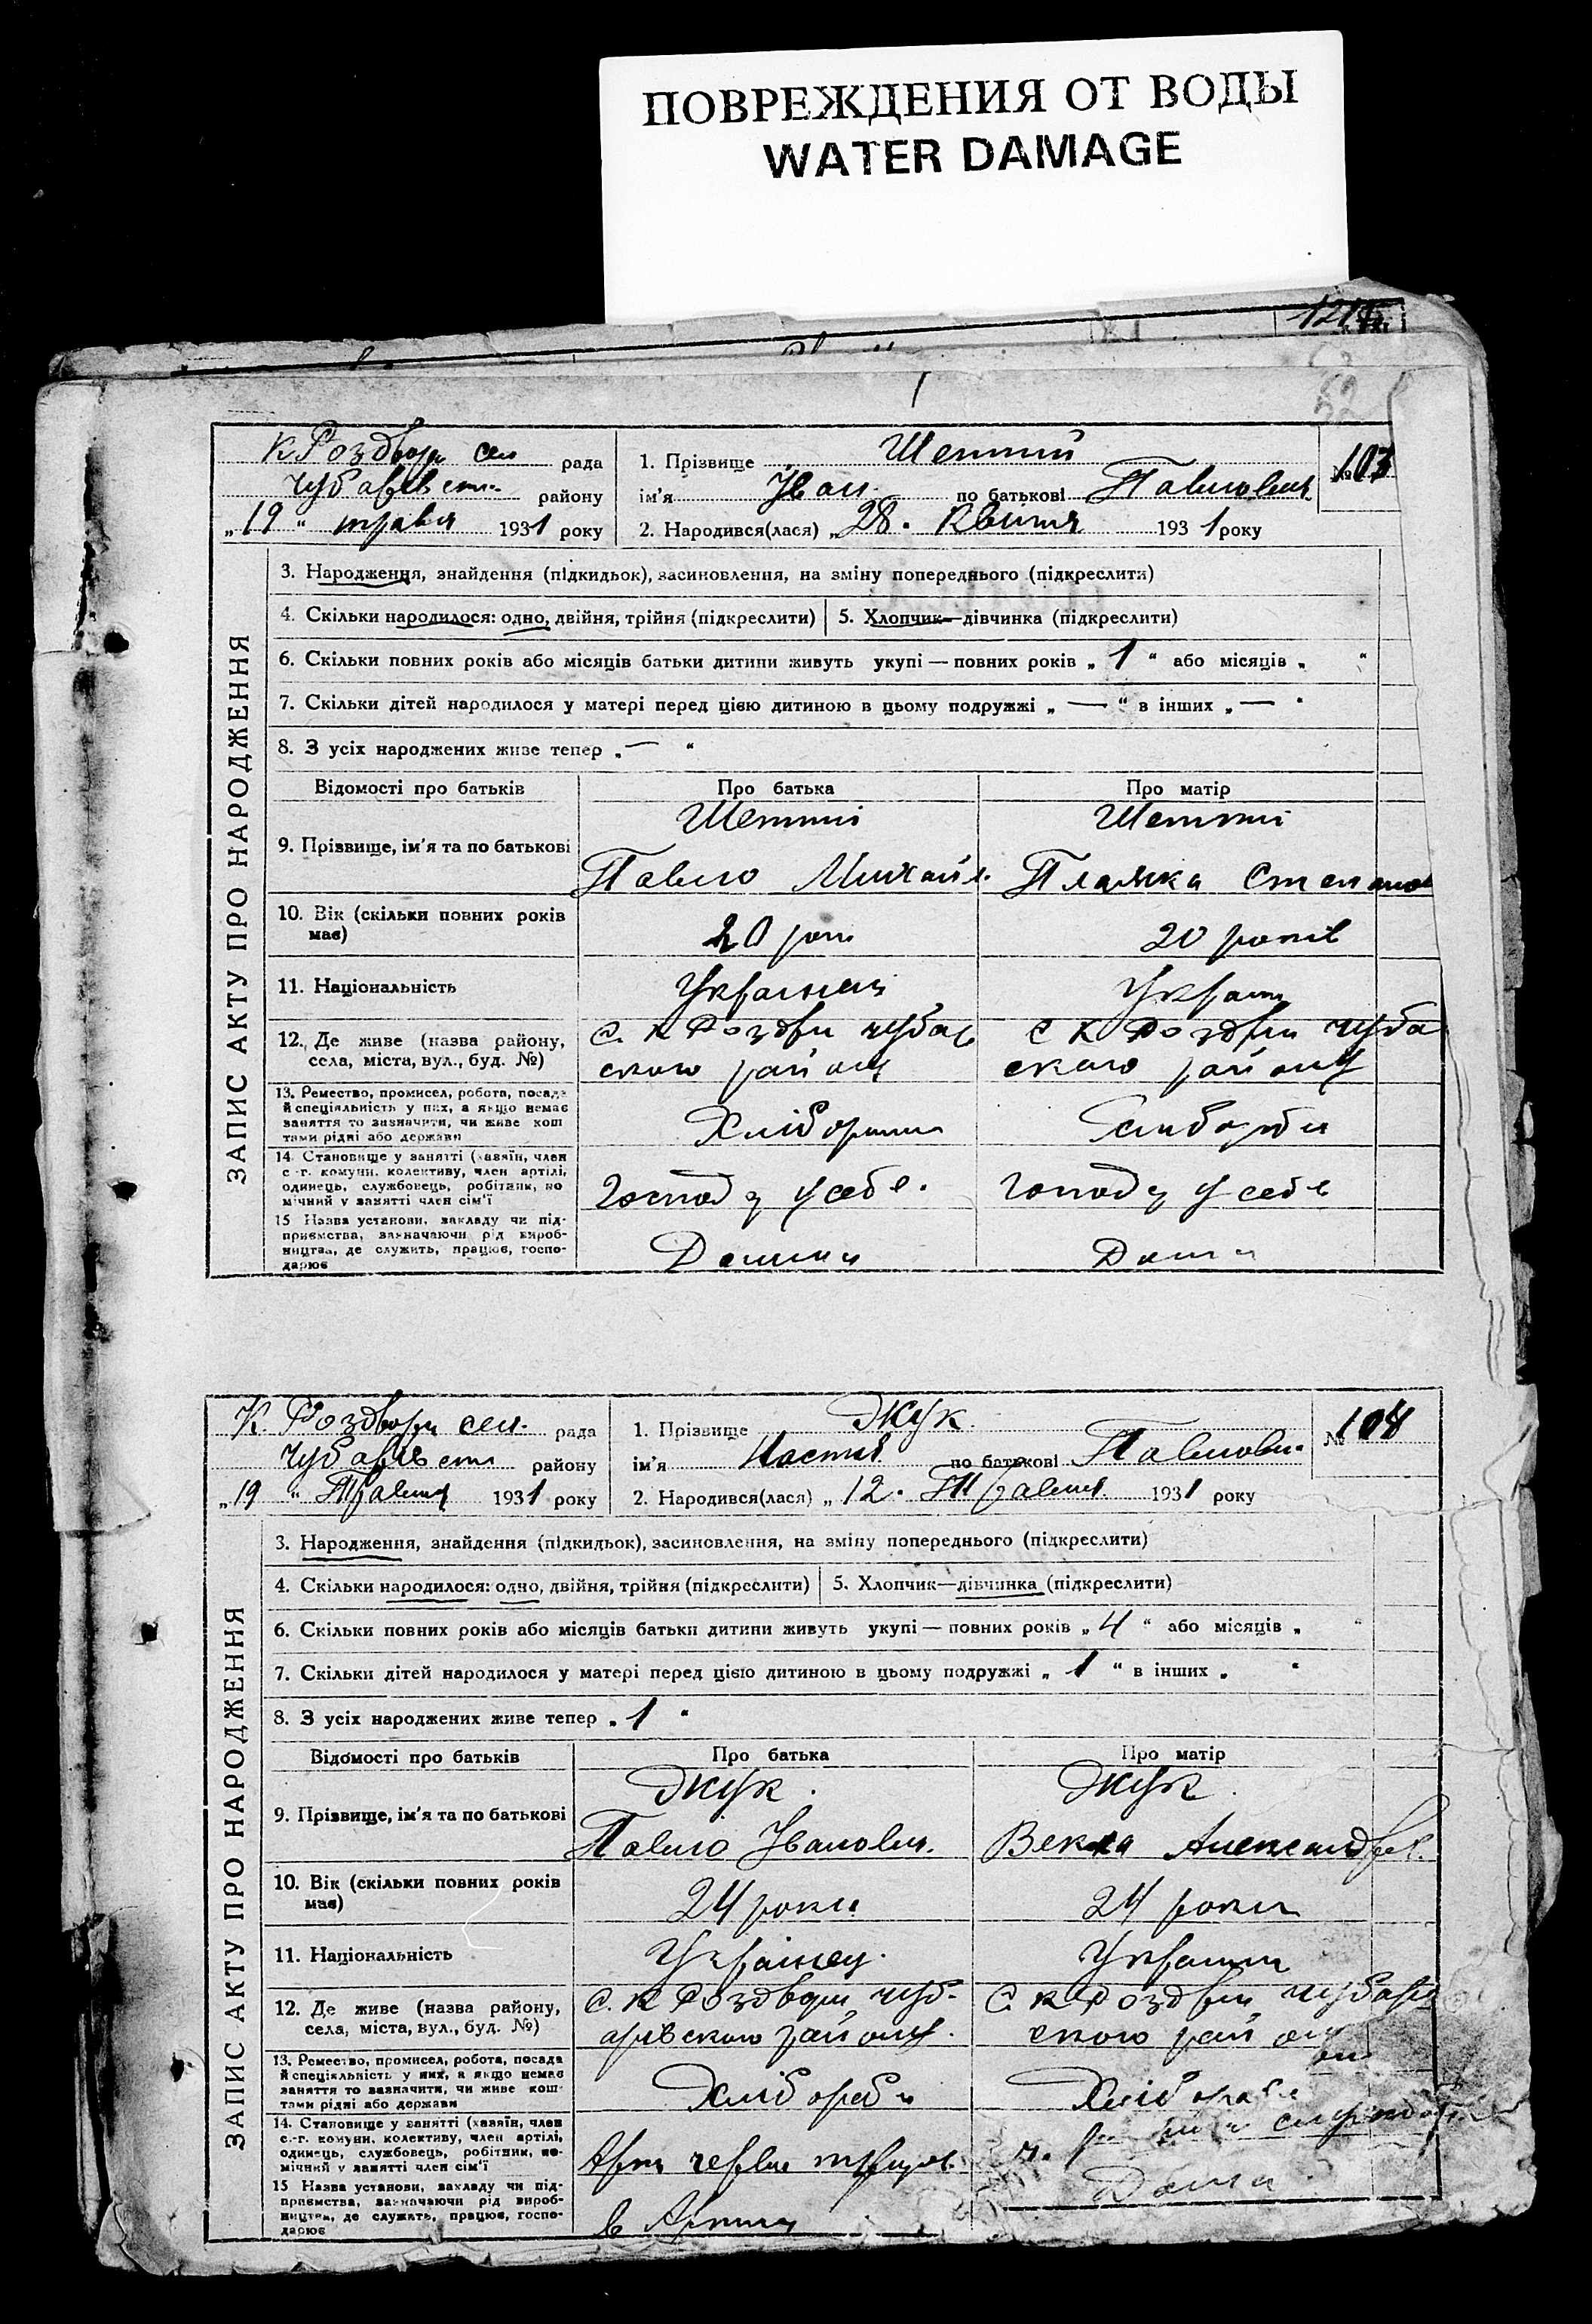 ПОВРЕЖДЕНИЯ ОТ ВОДЫ
WATER DAMAGE
ЗАПИС АКТУ ПРО НАРОДЖЕННЯ
К Роздори сел рада
Чубарівськ району
„19“ травня 1931 року
№ 103
1. Прізвище
ім'я Іван по батькові Павлович
2. Народився(лася) „28. Квітня 1931 року
3. Народження, знайдення (підкидьок), засиновлення, на зміну попереднього (підкреслити)
4. Скільки народилося: одно, двійня, трійня (підкреслити) 5. Хлопчик—дівчинка (підкреслити)
6. Скільки повних років або місяців батьки дитини живуть укупі — повних років „1“ або місяців „ “
7. Скільки дітей народилося у матері перед цією дитиною в цьому подружжі „—“ в інших „—“
8. З усіх народжених живе тепер „—“
Відомості про батьків Про батька Про матір
9. Прізвище, ім'я та по батькові
Павло Михайл. Степанов
10. Вік (скільки повних років має) 20 рок 20 років
11. Національність Українец Украин
12. Де живе (назва району, села, міста, вул., буд. №)
С. К Роздри чубар С К Роздри чуба
ского району ского району
13. Ремество, промисел, робота, посада й спеціяльність у них, а якщо немає заняття то зазначити, чи живе коштами рідні або держави
14. Становище у занятті (хазяїн, член с.-г. комуни, колективу, член артілі, одинець, службовець, робітник, помічний у занятті член сім'ї
Господ у себе. господ у себе
15. Назва установи, закладу чи підприємства, зазначаючи рід виробництва, де служить, працює, господарює
Дома
ЗАПИС АКТУ ПРО НАРОДЖЕННЯ
К Роздори сел. рада
Чубарівськ району
„19“ Травня 1931 року
№ 104
1. Прізвище Жук
ім'я Настя по батькові Павлови.
2. Народився(лася) „12. Травня 1931 року
3. Народження, знайдення (підкидьок), засиновлення, на зміну попереднього (підкреслити)
4. Скільки народилося: одно, двійня, трійня (підкреслити) 5. Хлопчик—дівчинка (підкреслити)
6. Скільки повних років або місяців батьки дитини живуть укупі — повних років „4“ або місяців „ “
7. Скільки дітей народилося у матері перед цією дитиною в цьому подружжі „1“ в інших „ “
8. З усіх народжених живе тепер „1“
Відомості про батьків Про батька Про матір
9. Прізвище, ім'я та по батькові
Жук. Жук.
Павло Іванович. Векла Александр.
10. Вік (скільки повних років має) 24 роки 24 роки
11. Національність Українец. Украин
12. Де живе (назва району, села, міста, вул., буд. №)
С. К Роздори чуб- С. К Роздри чубарі
арівского району. ского району
13. Ремество, промисел, робота, посада й спеціяльність у них, а якщо немає заняття то зазначити, чи живе коштами рідні або держави
Хліборобы Хлібороб
14. Становище у занятті (хазяїн, член с.-г. комуни, колективу, член артілі, одинець, службовець, робітник, помічний у занятті член сім'ї
15. Назва установи, закладу чи підприємства, зазначаючи рід виробництва, де служить, працює, господарює
в Артили Дома